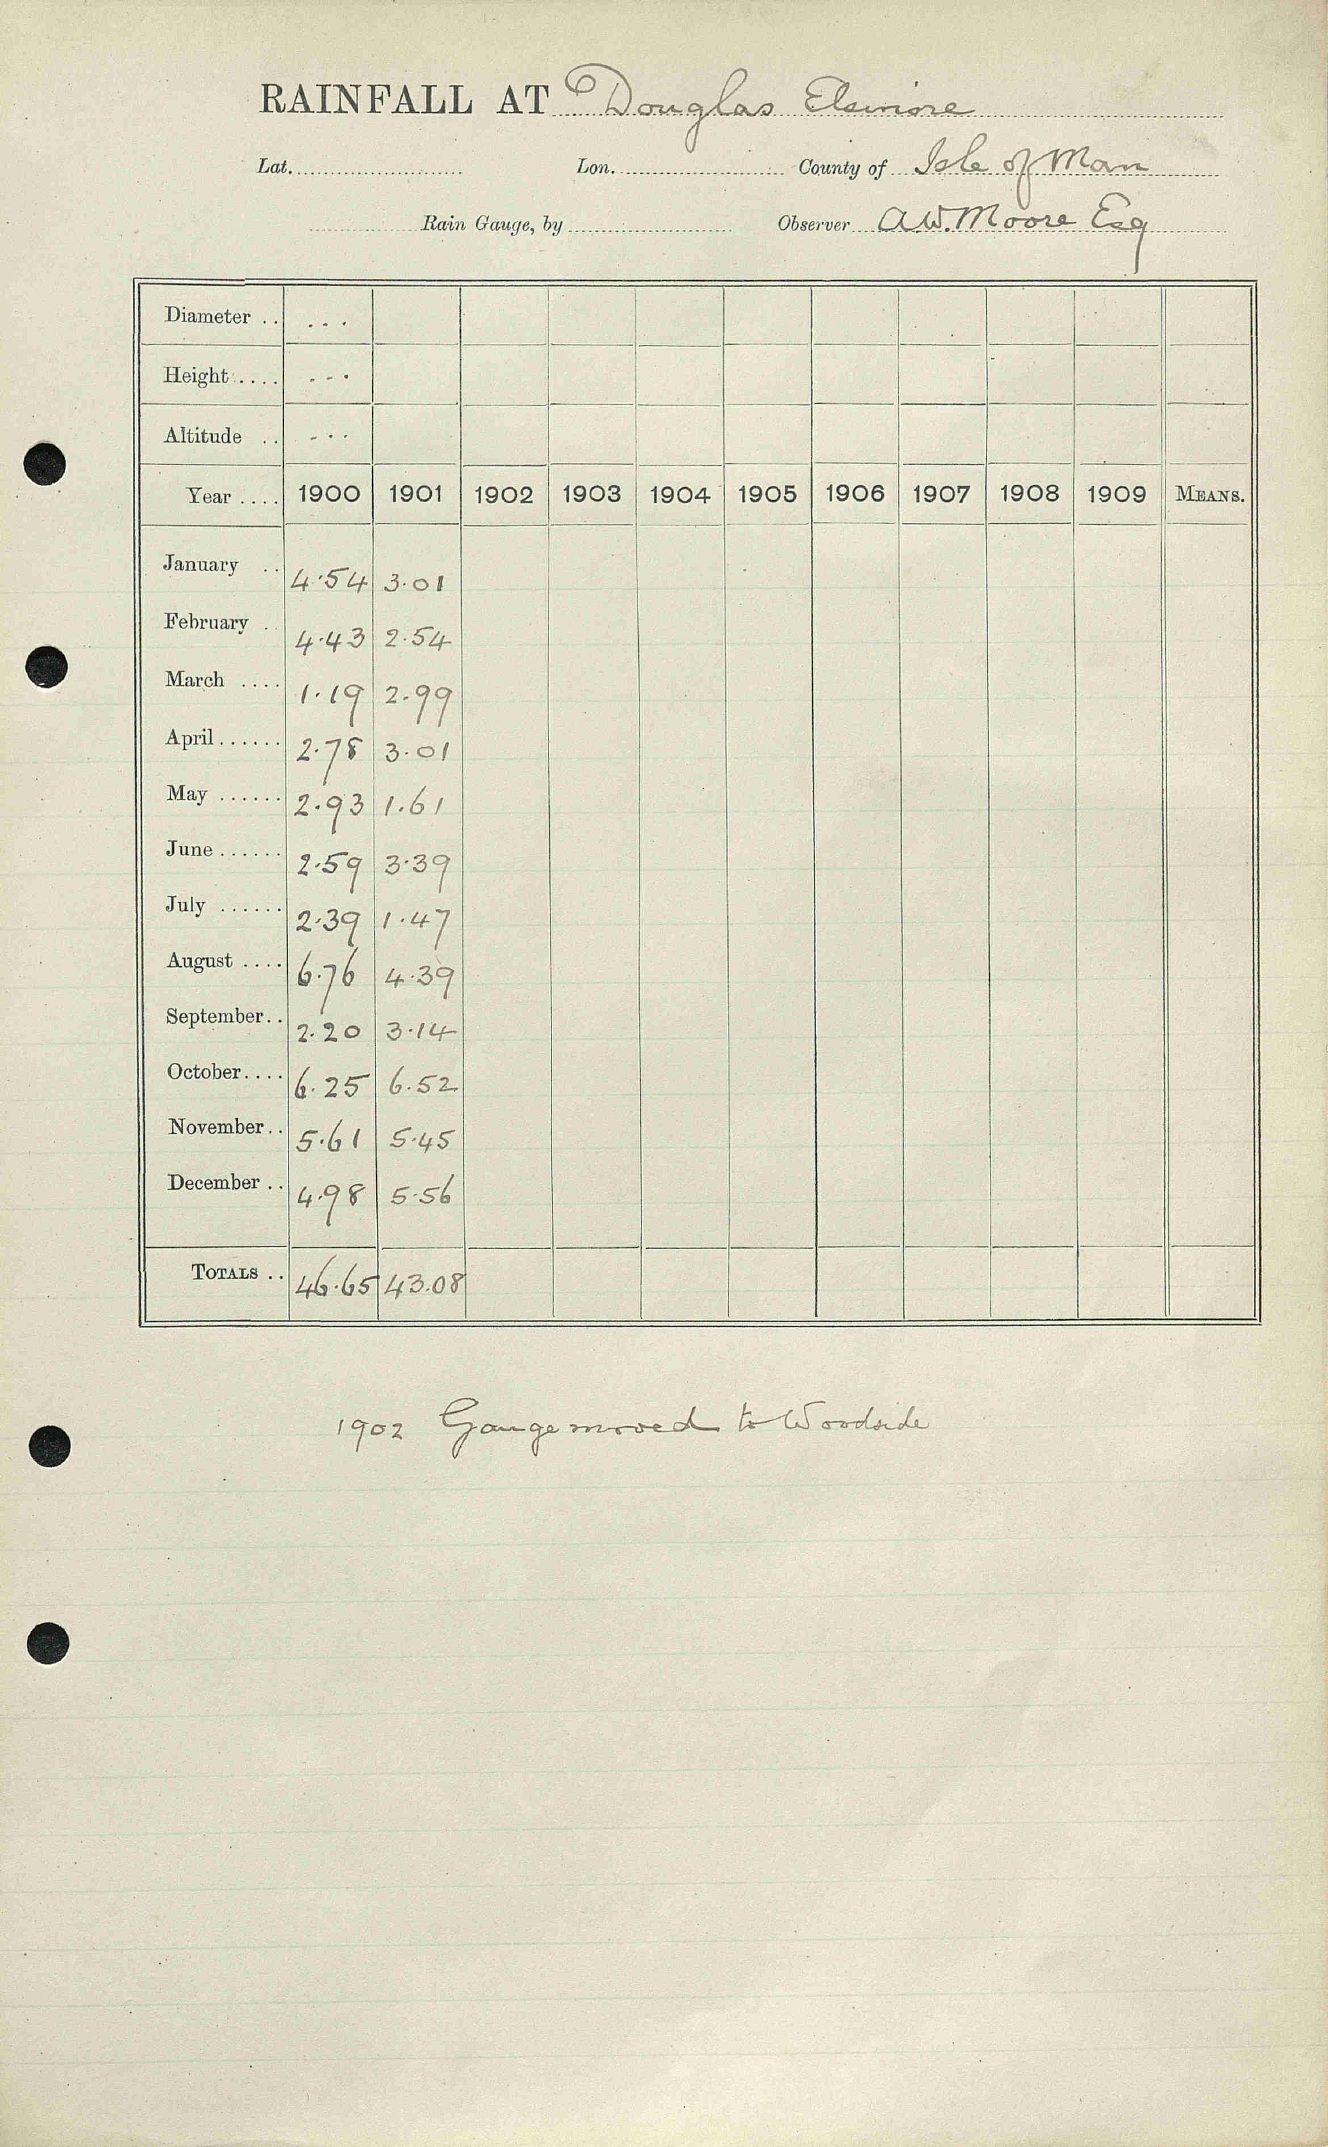 RAINFALL AT Douglas Elsinore
Lat. Lon. County of Isle of Man
Rain Gauge, by Observer A.W. Moore Esq
Diameter .. ...
Height .... ...
Altitude .. ...
Year .... 1900 1901 1902 1903 1904 1905 1906 1907 1908 1909 MEANS.
January .. 4.54 3.01
February . 4.43 2.54
March .... 1.19 2.99
April ...... 2.78 3.01
May ...... 2.93 1.61
June ...... 2.59 3.39
July ...... 2.39 1.47
August .... 6.76 4.39
September.. 2.20 3.14
October.... 6.25 6.52
November.. 5.61 5.45
December .. 4.98 5.56
TOTALS .. 46.65 43.08
1902 Gauge moved to Woodside